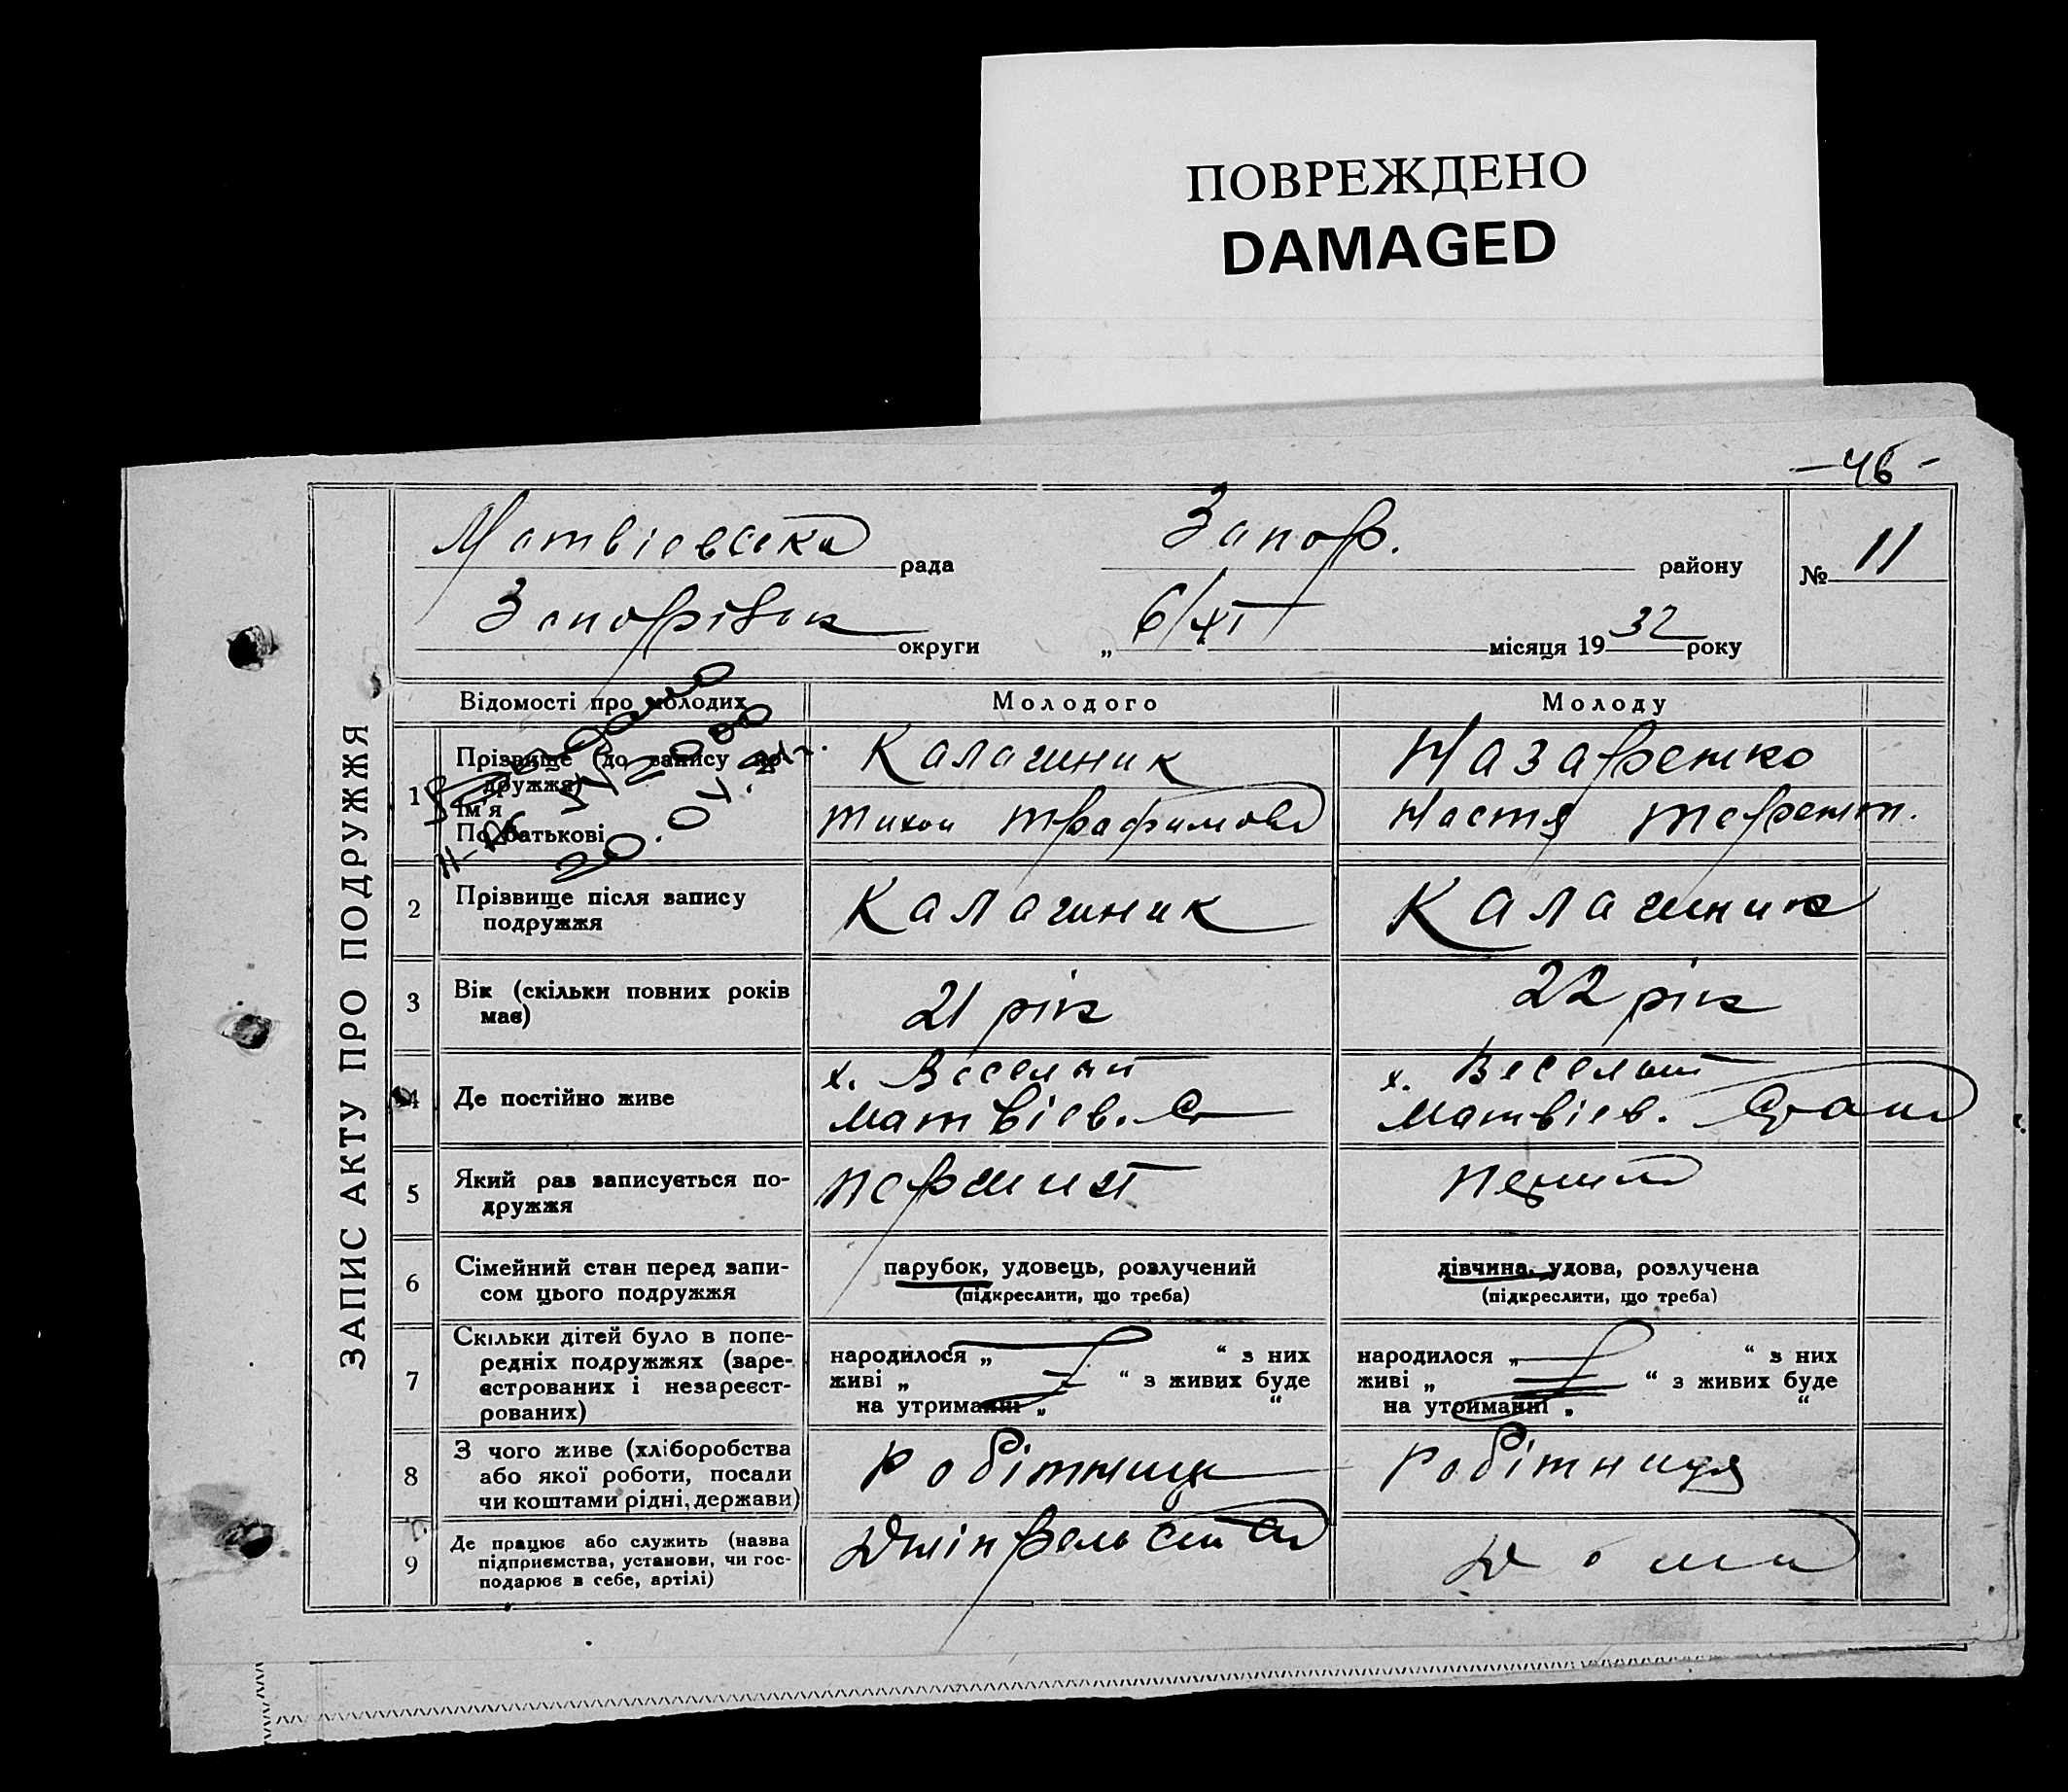 ПОВРЕЖДЕНО
DAMAGED
—46-
Матвієвська рада Запор. району № 11
Запоріжж округи „ 6/XI “ місяця 1932 року
ЗАПИС АКТУ ПРО ПОДРУЖЖЯ
Відомості про молодих Молодого Молоду
1 Прізвище (до запису по- Калашник Назаренко
дружжя)
Ім'я
По батькові Тихон Трафимов Настя Терент.
20.04.
2 Прізвище після запису Калашник Калашник
подружжя
3 Вік (скільки повних років 21 рік 22 рік
має)
х. Веселий х. Веселий
4 Де постійно живе Матвієв. С Матвієв.
5 Який раз записується по- Перший Перший
дружжя
6 Сімейний стан перед запи- парубок, удовець, розлучений дівчина, удова, розлучена
сом цього подружжя (підкреслити, що треба) (підкреслити, що треба)
7 Скільки дітей було в попе-
редніх подружжях (заре- народилося „ “ з них народилося „ “ з них
єстрованих і незареєст- живі „ “ з живих буде живі „ “ з живих буде
рованих) на утриманні „ “ на утриманні „ “
8 З чого живе (хліборобства Робітниц Робітниця
або якої роботи, посади
чи коштами рідні, держави)
9 Де працює або служить (назва Дніпрельстан Дома
підприємства, установи, чи гос-
подарює в себе, артілі)